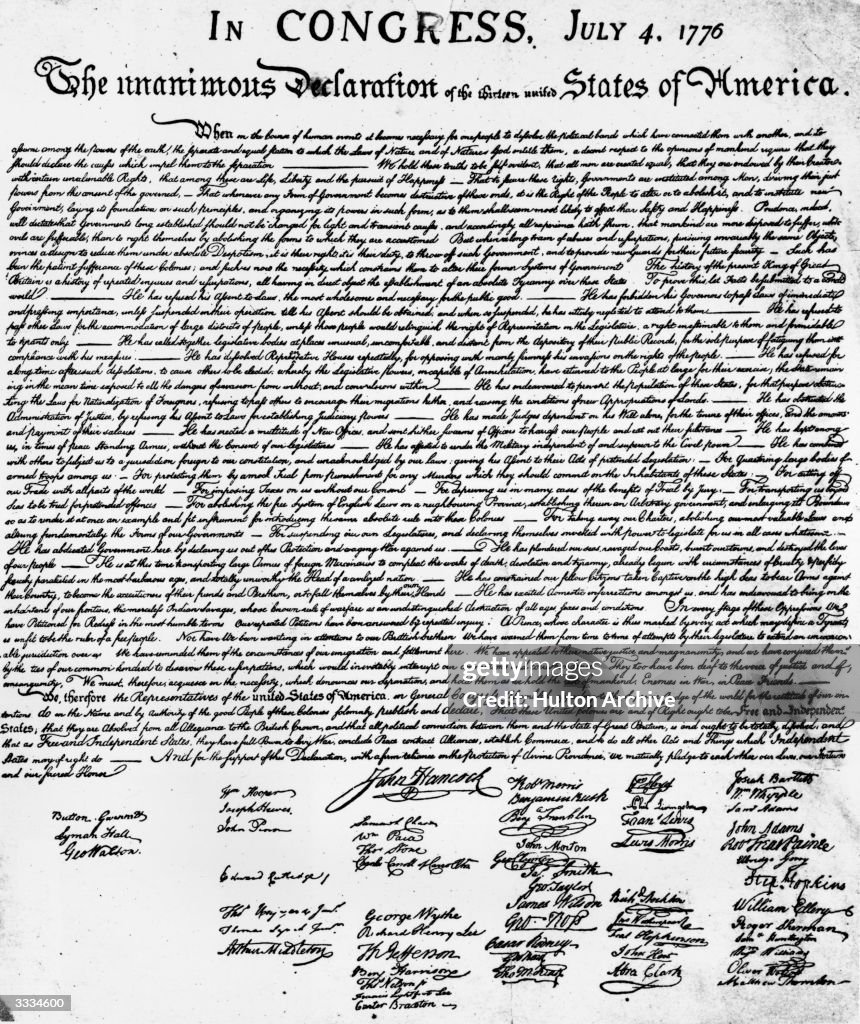 IN CONGRESS, JULY 4, 1776
The unanimous Declaration of the thirteen united States of America.
When in the Course of human events it becomes necessary for one people to dissolve the political bands which have connected them with another, and to
assume among the powers of the earth, the separate and equal station to which the Laws of Nature and of Nature's God entitle them, a decent respect to the opinions of mankind requires that they
should declare the causes which impel them to the separation. We hold these truths to be self-evident, that all men are created equal, that they are endowed by their Creator
with certain unalienable Rights, that among these are Life, Liberty and the pursuit of Happiness — That to secure these rights, Governments are instituted among Men, deriving their just
powers from the consent of the governed, — That whenever any Form of Government becomes destructive of these ends, it is the Right of the People to alter or to abolish it, and to institute new
Government, laying its foundation on such principles, and organizing its powers in such form, as to them shall seem most likely to effect their Safety and Happiness. Prudence, indeed,
will dictate that Governments long established should not be changed for light and transient causes; and accordingly all experience hath shewn, that mankind are more disposed to suffer, while
evils are sufferable, than to right themselves by abolishing the forms to which they are accustomed. But when a long train of abuses and usurpations, pursuing invariably the same Object,
evinces a design to reduce them under absolute Despotism, it is their right, it is their duty, to throw off such Government, and to provide new Guards for their future security. — Such has
been the patient sufferance of these Colonies; and such is now the necessity which constrains them to alter their former Systems of Government. The history of the present King of Great
Britain is a history of repeated injuries and usurpations, all having in direct object the establishment of an absolute Tyranny over these States. To prove this, let Facts be submitted to a candid
world. He has refused his Assent to Laws, the most wholesome and necessary for the public good. He has forbidden his Governors to pass Laws of immediate
and pressing importance, unless suspended in their operation till his Assent should be obtained; and when so suspended, he has utterly neglected to attend to them. He has refused to
pass other Laws for the accommodation of large districts of people, unless those people would relinquish the right of Representation in the Legislature, a right inestimable to them and formidable
to tyrants only. He has called together legislative bodies at places unusual, uncomfortable, and distant from the depository of their public Records, for the sole purpose of fatiguing them into
compliance with his measures. He has dissolved Representative Houses repeatedly, for opposing with manly firmness his invasions on the rights of the people. He has refused for
a long time, after such dissolutions, to cause others to be elected; whereby the Legislative powers, incapable of Annihilation, have returned to the People at large for their exercise; the State remain-
ing in the mean time exposed to all the dangers of invasion from without, and convulsions within. He has endeavoured to prevent the population of these States; for that purpose obstruc-
ting the Laws for Naturalization of Foreigners; refusing to pass others to encourage their migrations hither, and raising the conditions of new Appropriations of Lands. He has obstructed the
Administration of Justice, by refusing his Assent to Laws for establishing Judiciary powers. He has made Judges dependent on his Will alone, for the tenure of their offices, and the amount
and payment of their salaries. He has erected a multitude of New Offices, and sent hither swarms of Officers to harrass our people, and eat out their substance. He has kept among
us, in times of peace, Standing Armies without the Consent of our legislatures. He has affected to render the Military independent of and superior to the Civil power. He has combined
with others to subject us to a jurisdiction foreign to our constitution, and unacknowledged by our laws; giving his Assent to their Acts of pretended Legislation: For Quartering large bodies of
armed troops among us: For protecting them, by a mock Trial, from punishment for any Murders which they should commit on the Inhabitants of these States: For cutting off
our Trade with all parts of the world: For imposing Taxes on us without our Consent: For depriving us in many cases, of the benefits of Trial by Jury: For transporting us beyond
Seas to be tried for pretended offences: For abolishing the free System of English Laws in a neighbouring Province, establishing therein an Arbitrary government, and enlarging its Boundaries
so as to render it at once an example and fit instrument for introducing the same absolute rule into these Colonies: For taking away our Charters, abolishing our most valuable Laws, and
altering fundamentally the Forms of our Governments: For suspending our own Legislatures, and declaring themselves invested with power to legislate for us in all cases whatsoever.
He has abdicated Government here, by declaring us out of his Protection and waging War against us. He has plundered our seas, ravaged our Coasts, burnt our towns, and destroyed the lives
of our people. He is at this time transporting large Armies of foreign Mercenaries to compleat the works of death, desolation and tyranny, already begun with circumstances of Cruelty & perfidy
scarcely paralleled in the most barbarous ages, and totally unworthy the Head of a civilized nation. He has constrained our fellow Citizens taken Captive on the high Seas to bear Arms against
their Country, to become the executioners of their friends and Brethren, or to fall themselves by their Hands. He has excited domestic insurrections amongst us, and has endeavoured to bring on the
inhabitants of our frontiers, the merciless Indian Savages, whose known rule of warfare, is an undistinguished destruction of all ages, sexes and conditions. In every stage of these Oppressions We
have Petitioned for Redress in the most humble terms: Our repeated Petitions have been answered by repeated injury. A Prince, whose character is thus marked by every act which may define a Tyrant,
is unfit to be the ruler of a free people. Nor have We been wanting in attentions to our Brittish brethren. We have warned them from time to time of attempts by their legislature to extend an unwarrant-
able jurisdiction over us. We have reminded them of the circumstances of our emigration and settlement here. We have appealed to their native justice and magnanimity, and we have conjured them
by the ties of our common kindred to disavow these usurpations, which would inevitably interrupt our They too have been deaf to the voice of justice and of
consanguinity. We must, therefore, acquiesce in the necessity, which denounces our Separation, and hold them, as we hold the rest of mankind, Enemies in War, in Peace Friends.
We, therefore, the Representatives of the united States of America, in General Congress, of the world for the rectitude of our in-
tentions, do, in the Name, and by Authority of the good People of these Colonies, solemnly publish and declare, That these United Colonies are, and of Right ought to be Free and Independent
States; that they are Absolved from all Allegiance to the British Crown, and that all political connection between them and the State of Great Britain, is and ought to be totally dissolved; and
that as Free and Independent States, they have full Power to levy War, conclude Peace, contract Alliances, establish Commerce, and to do all other Acts and Things which Independent
States may of right do. And for the support of this Declaration, with a firm reliance on the protection of divine Providence, we mutually pledge to each other our Lives, our Fortunes
and our sacred Honor.
gettyimages®
Credit: Hulton Archive
Button Gwinnett
Lyman Hall
Geo Walton.
Wm Hooper
Joseph Hewes,
John Penn
Edward Rutledge /
Thos Heyward Junr.
Thomas Lynch Junr.
Arthur Middleton
John Hancock
Samuel Chase
Wm Paca
Thos Stone
Charles Carroll of Carrollton
George Wythe
Richard Henry Lee
Th Jefferson
Benj Harrison
Thos Nelson jr.
Francis Lightfoot Lee
Carter Braxton
Robt Morris
Benjamin Rush
Benj Franklin
John Morton
Geo Clymer
Jas Smith
Geo Taylor
James Wilson
Geo Ross
Caesar Rodney
Geo Read
Tho M:Kean
Wm Floyd
Phil Livingston
Frans Lewis
Lewis Morris
Richd Stockton
Jno Witherspoon
Fras Hopkinson
John Hart
Abra Clark
Josiah Bartlett
Wm Whipple
Saml Adams
John Adams
Robt Treat Paine
Elbridge Gerry
Step Hopkins
William Ellery
Roger Sherman
Saml Huntington
Wm Williams
Oliver Wolcott
Matthew Thornton
3334600